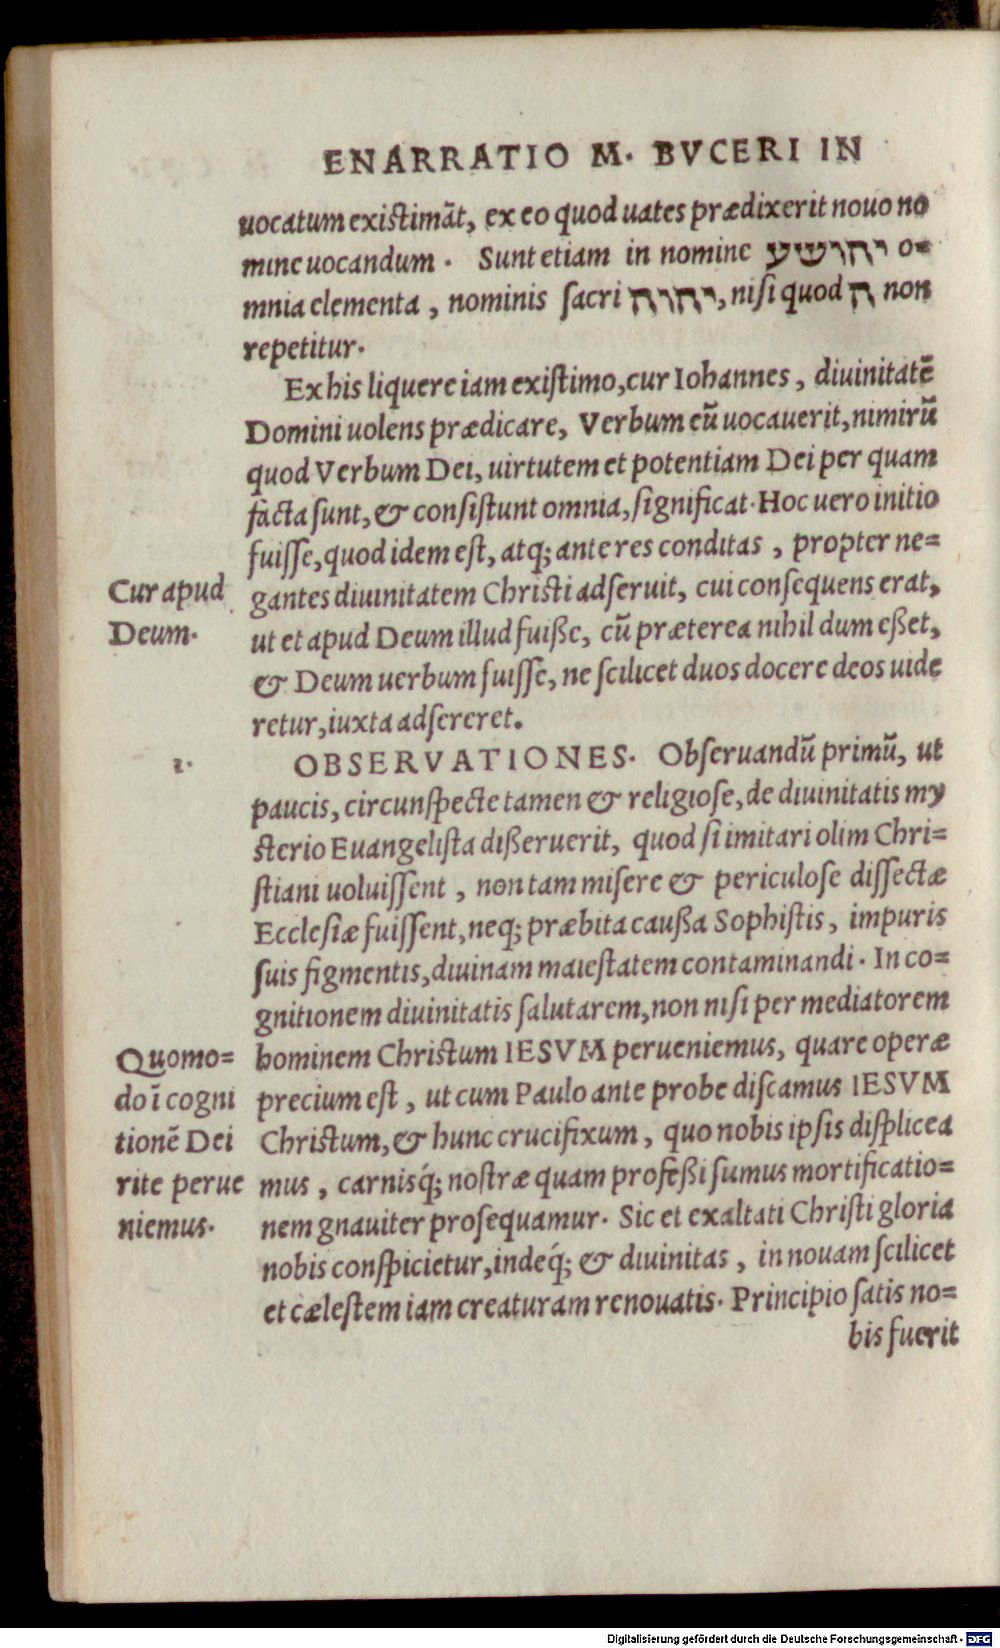 ENARRATIO M. BVCERI IN
uocatum existimāt, ex eo quod uates prædixerit nouo no
mine uocandum. Sunt etiam in nomine יהושיע o=
mnia elementa, nominis sacri יהוה, nisi quod ה non
repetitur.
Ex his liquere iam existimo, cur Iohannes, diuinitatē
Domini uolens prædicare, Verbum eū uocauerit, nimirū
quod Verbum Dei, uirtutem et potentiam Dei per quam
facta sunt, & consistunt omnia, significat. Hoc uero initio
fuisse, quod idem est, atq; ante res conditas, propter ne=
Cur apud
Deum.
gantes diuinitatem Christi adseruit, cui consequens erat,
ut et apud Deum illud fuiße, cū præterea nihil dum eßet,
& Deum uerbum fuisse, ne scilicet duos docere deos uide
retur, iuxta adsereret.
1.
OBSERVATIONES. Obseruandū primū, ut
paucis, circunspecte tamen & religiose, de diuinitatis my
sterio Euangelista dißeruerit, quod si imitari olim Chri=
stiani uoluissent, non tam misere & periculose dissectæ
Ecclesiæ fuissent, neq; præbita caußa Sophistis, impuris
suis figmentis, diuinam maiestatem contaminandi. In co=
gnitionem diuinitatis salutarem, non nisi per mediatorem
Quomo=
do ī cogni
tionē Dei
rite perue
niemus.
hominem Christum IESVM perueniemus, quare operæ
precium est, ut cum Paulo ante probe discamus IESVM
Christum, & hunc crucifixum, quo nobis ipsis displicea
mus, carnisq́; nostræ quam profeßi sumus mortificatio=
nem gnauiter prosequamur. Sic et exaltati Christi gloria
nobis conspicietur, indeq́; & diuinitas, in nouam scilicet
et cælestem iam creaturam renouatis. Principio satis no=
bis fuerit
Digitalisierung gefördert durch die Deutsche Forschungsgemeinschaft - DFG